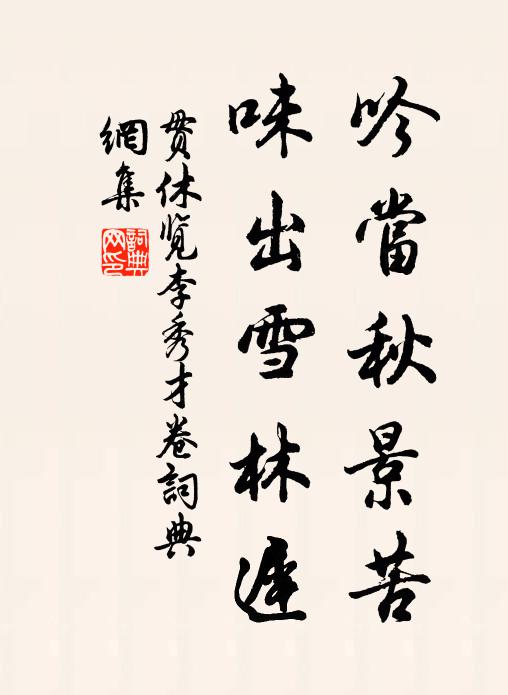 吟當秋景苦
味出雪林遲
貫休览李秀才卷詞典
網集
詞典
网印